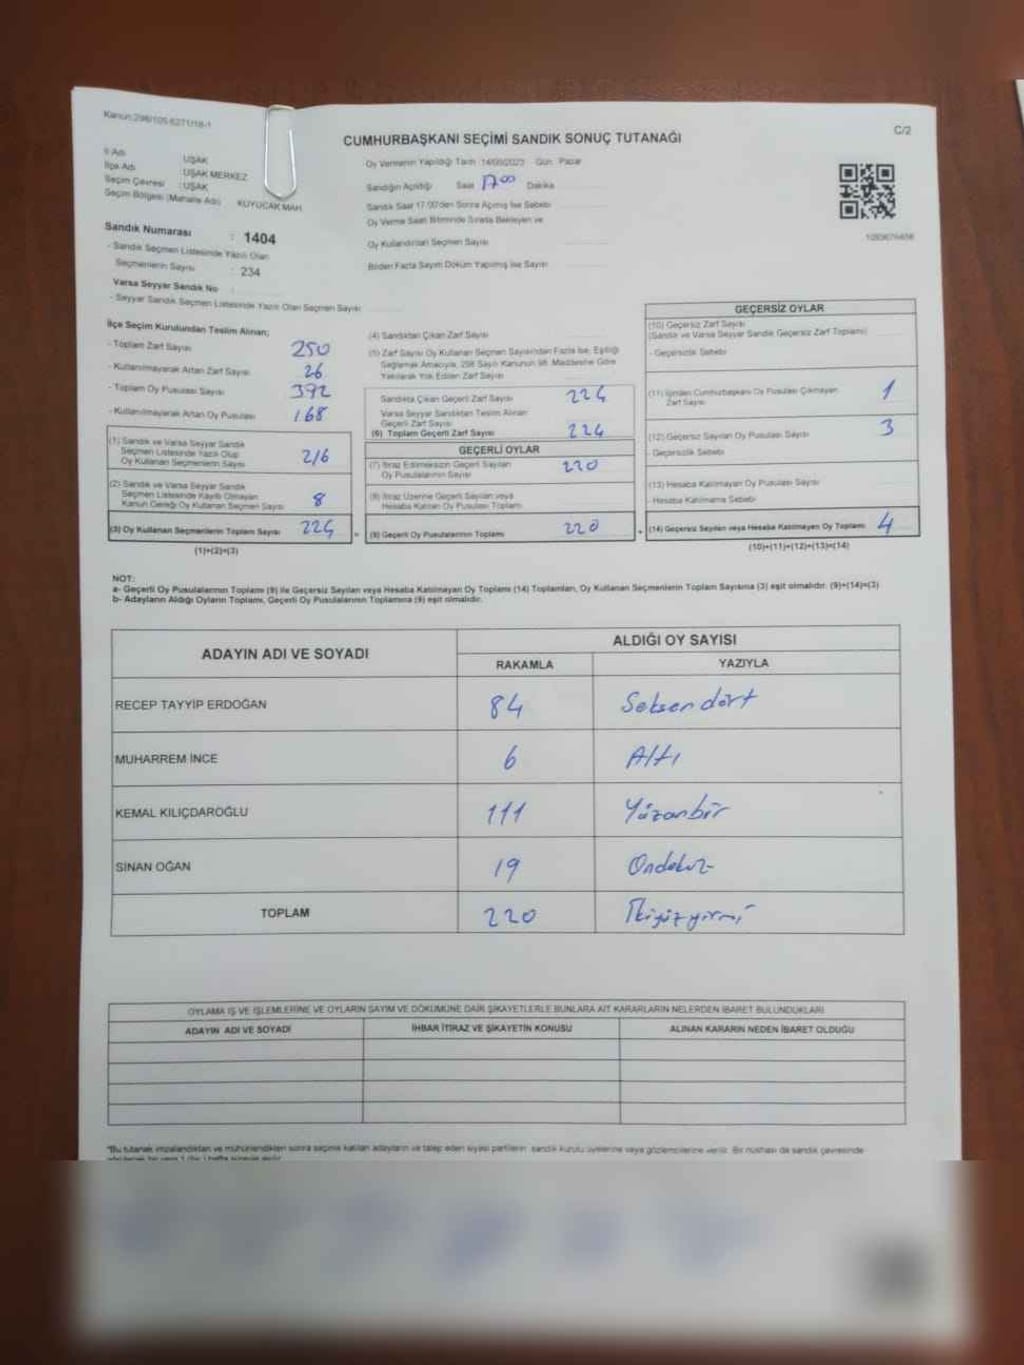 Kanun:298/105-6271/18-1
C/2
CUMHURBAŞKANI SEÇİMİ SANDIK SONUÇ TUTANAĞI
İl Adı : UŞAK
İlçe Adı : UŞAK MERKEZ
Seçim Çevresi : UŞAK
Seçim Bölgesi (Mahalle Adı) : KUYUCAK MAH.
Sandık Numarası : 1404
- Sandık Seçmen Listesinde Yazılı Olan
Seçmenlerin Sayısı : 234
Varsa Seyyar Sandık No :
- Seyyar Sandık Seçmen Listesinde Yazılı Olan Seçmen Sayısı
Oy Vermenin Yapıldığı Tarih 14/05/2023 Gün Pazar
Sandığın Açıldığı Saat 17 00 Dakika
Sandık Saat 17.00'den Sonra Açılmış İse Sebebi
Oy Verme Saati Bitiminde Sırada Bekleyen ve
Oy Kullandırılan Seçmen Sayısı
Birden Fazla Sayım Döküm Yapılmış İse Sayısı
İlçe Seçim Kurulundan Teslim Alınan;
- Toplam Zarf Sayısı 250
- Kullanılmayarak Artan Zarf Sayısı 26
- Toplam Oy Pusulası Sayısı 392
- Kullanılmayarak Artan Oy Pusulası 168
(1) Sandık ve Varsa Seyyar Sandık
Seçmen Listesinde Yazılı Olup
Oy Kullanan Seçmenlerin Sayısı 216
(2) Sandık ve Varsa Seyyar Sandık
Seçmen Listesinde Kayıtlı Olmayan
Kanun Gereği Oy Kullanan Seçmen Sayısı 8
(3) Oy Kullanan Seçmenlerin Toplam Sayısı 224
(1)+(2)=(3)
(4) Sandıktan Çıkan Zarf Sayısı
(5) Zarf Sayısı Oy Kullanan Seçmen Sayısından Fazla İse, Eşitliği
Sağlamak Amacıyla, 298 Sayılı Kanunun 98. Maddesine Göre
Yakılarak Yok Edilen Zarf Sayısı
Sandıkta Çıkan Geçerli Zarf Sayısı 224
Varsa Seyyar Sandıktan Teslim Alınan
Geçerli Zarf Sayısı
(6) Toplam Geçerli Zarf Sayısı 224
GEÇERLİ OYLAR
(7) İtiraz Edilmeksizin Geçerli Sayılan
Oy Pusulalarının Sayısı 220
(8) İtiraz Üzerine Geçerli Sayılan veya
Hesaba Katılan Oy Pusulası Toplamı
(9) Geçerli Oy Pusulalarının Toplamı 220
GEÇERSİZ OYLAR
(10) Geçersiz Zarf Sayısı
(Sandık ve Varsa Seyyar Sandık Geçersiz Zarf Toplamı)
- Geçersizlik Sebebi
(11) İçinden Cumhurbaşkanı Oy Pusulası Çıkmayan
Zarf Sayısı 1
(12) Geçersiz Sayılan Oy Pusulası Sayısı 3
- Geçersizlik Sebebi
(13) Hesaba Katılmayan Oy Pusulası Sayısı
- Hesaba Katılmama Sebebi
(14) Geçersiz Sayılan veya Hesaba Katılmayan Oy Toplamı 4
(10)+(11)+(12)+(13)=(14)
NOT:
a- Geçerli Oy Pusulalarının Toplamı (9) ile Geçersiz Sayılan veya Hesaba Katılmayan Oy Toplamı (14) Toplamları, Oy Kullanan Seçmenlerin Toplam Sayısına (3) eşit olmalıdır. (9)+(14)=(3)
b- Adayların Aldığı Oyların Toplamı, Geçerli Oy Pusulalarının Toplamına (9) eşit olmalıdır.
ADAYIN ADI VE SOYADI
ALDIĞI OY SAYISI
RAKAMLA YAZIYLA
RECEP TAYYİP ERDOĞAN 84 Seksendört
MUHARREM İNCE 6 Altı
KEMAL KILIÇDAROĞLU 111 Yüzonbir
SİNAN OĞAN 19 Ondokuz
TOPLAM 220 İkiyüzyirmi
OYLAMA İŞ VE İŞLEMLERİNE VE OYLARIN SAYIM VE DÖKÜMÜNE DAİR ŞİKAYETLERLE BUNLARA AİT KARARLARIN NELERDEN İBARET BULUNDUKLARI
ADAYIN ADI VE SOYADI İHBAR İTİRAZ VE ŞİKAYETİN KONUSU ALINAN KARARIN NEDEN İBARET OLDUĞU
*Bu tutanak imzalandıktan ve mühürlendikten sonra seçime katılan adayların ve talep eden siyasi partilerin sandık kurulu üyelerine veya gözlemcilerine verilir. Bir nüshası da sandık çevresinde